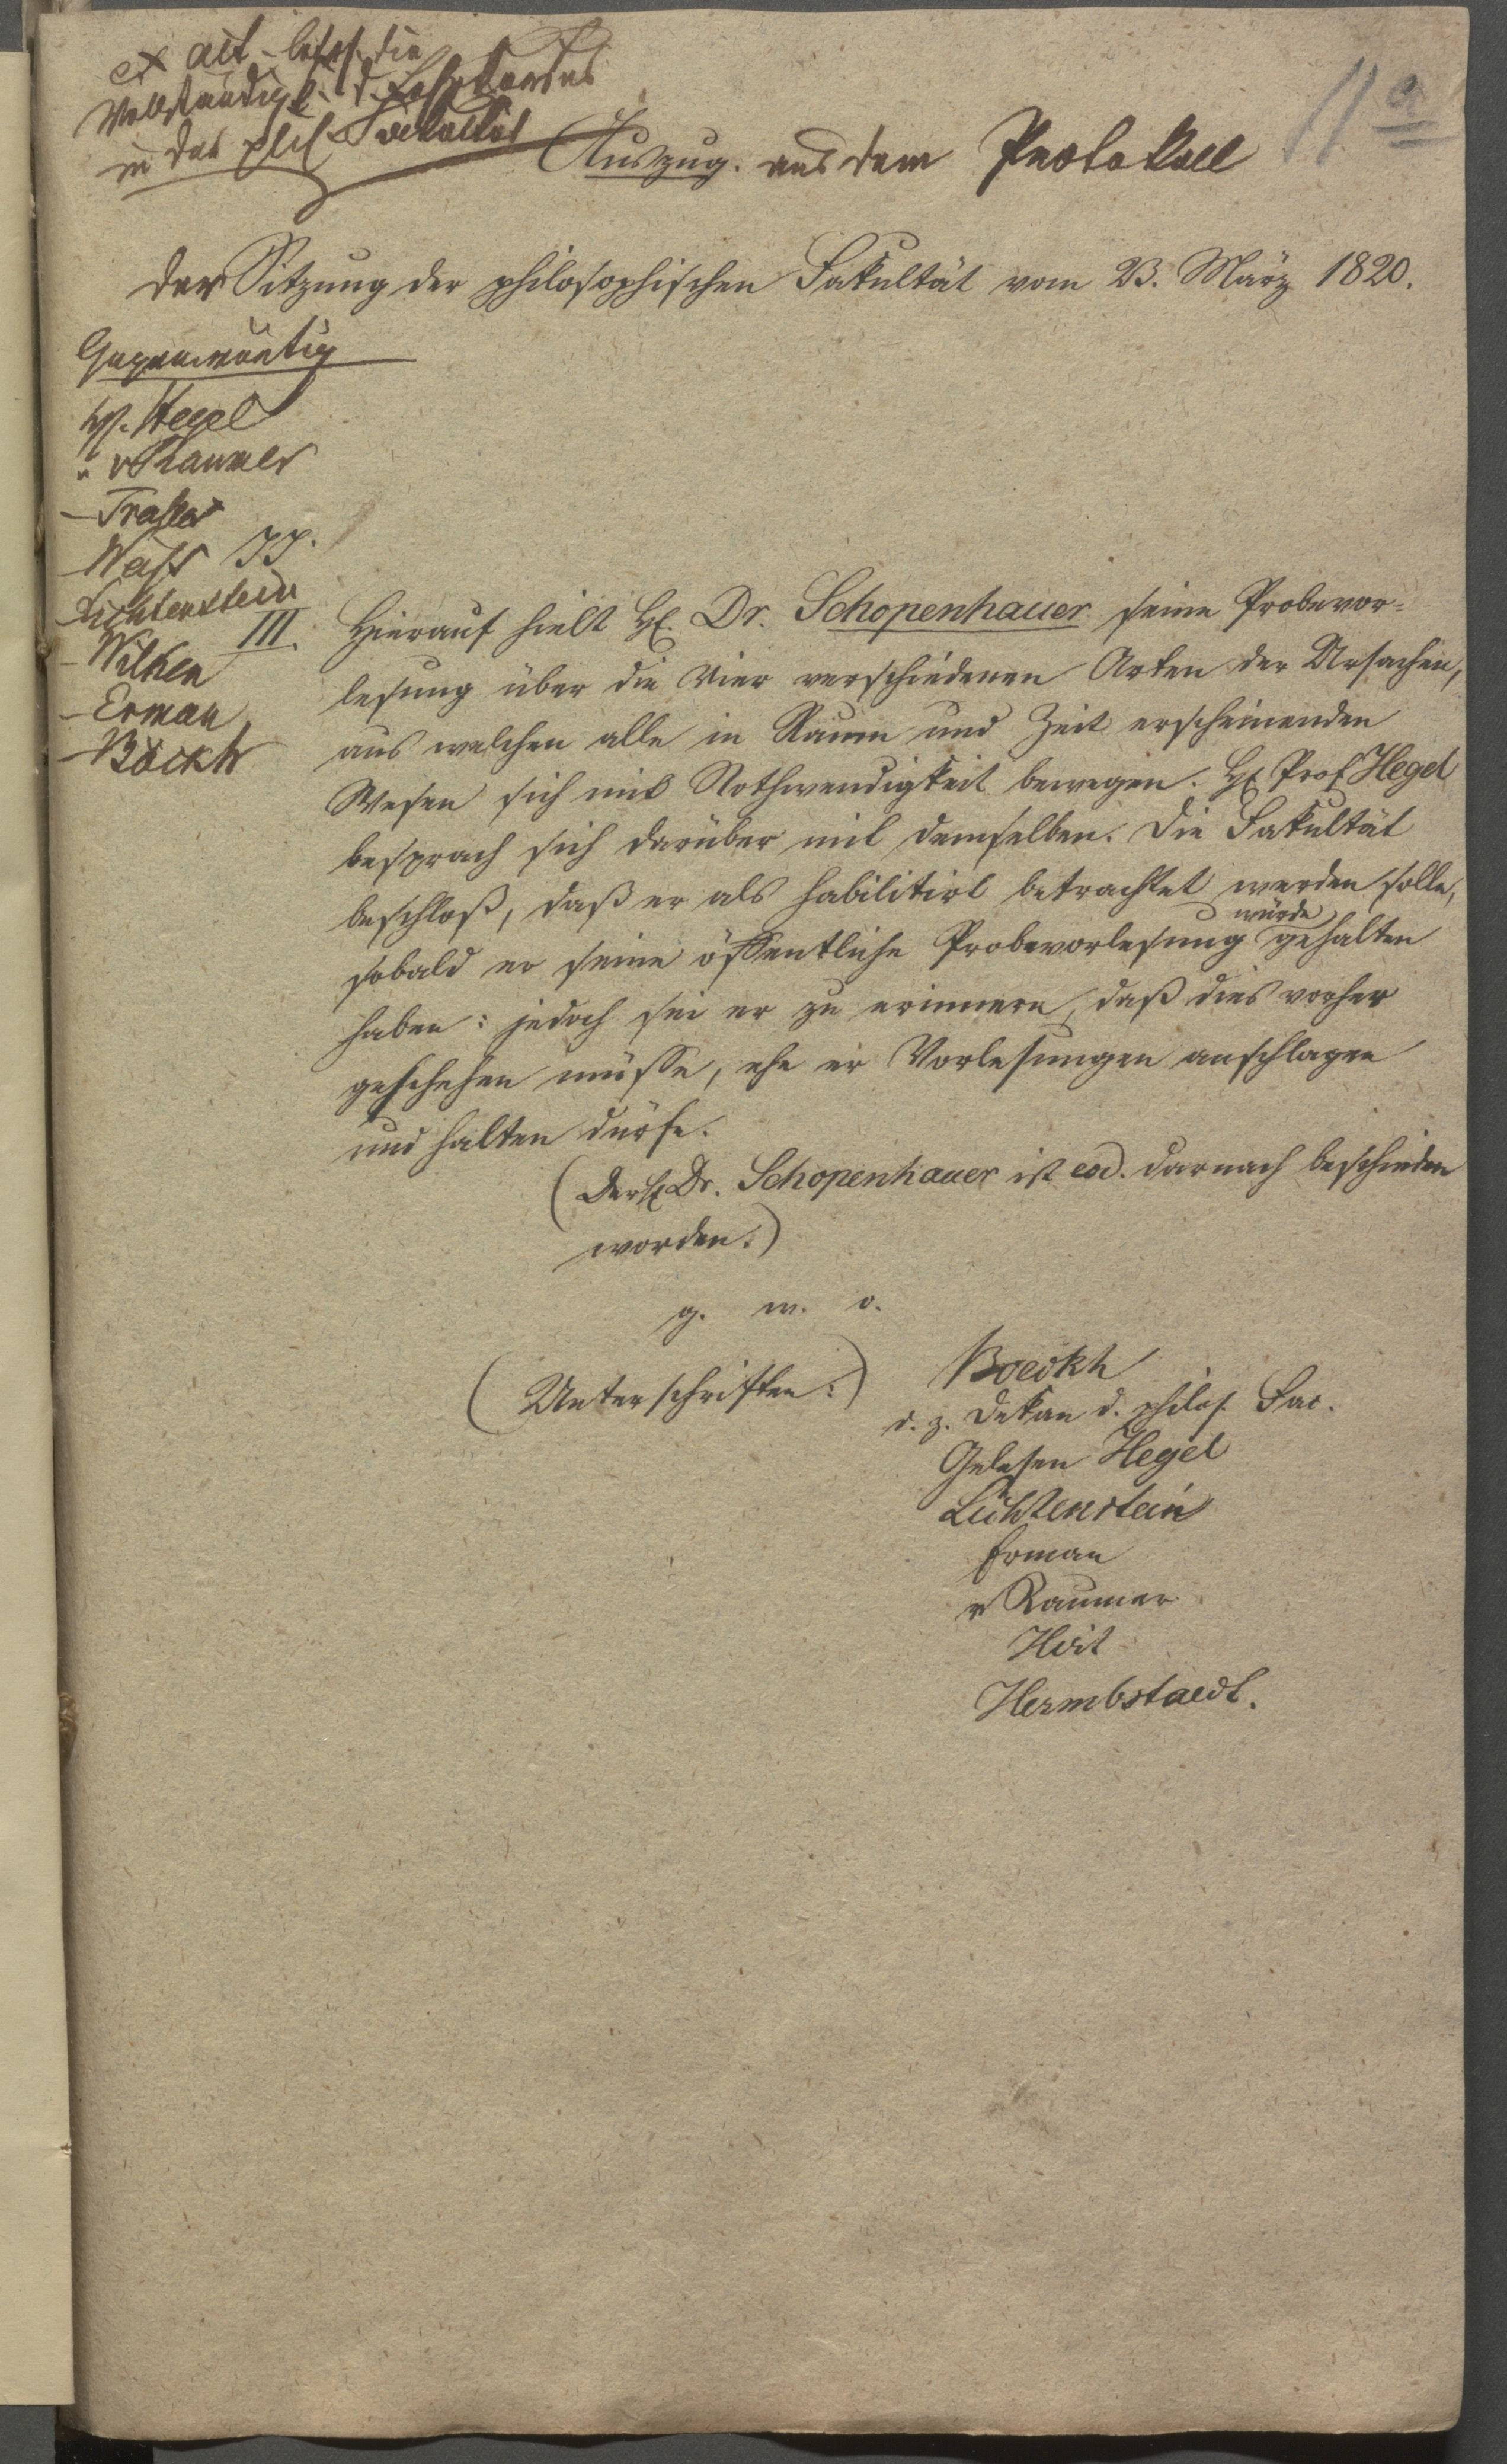 ex act. betref. die
Vollständigk. d. Lehrkursus
in der phil. Fakultät
11 a
Auszug. aus dem Protokoll
der Sitzung der philosophischen Fakultät vom 23. März 1820.
Gegenwärtig
H. Hegel
" v Raumer
- Tralles
- Weiss
- Lichtenstein
- Wilken
- Erman
- Böckh
III. Hierauf hielt H. Dr. Schopenhauer seine Probevor-
lesung über die vier verschiedenen Arten der Ursachen,
aus welchen alle in Raum und Zeit erscheinenden
Wesen sich mit Nothwendigkeit bewegen. H. Prof Hegel
besprach sich darüber mit demselben. Die Fakultät
beschloß, daß er als habilitirt betrachtet werden solle,
sobald er seine öffentliche Probevorlesung gehalten
würde
haben: jedoch sei er zu erinnern, daß dies vorher
geschehen müsse, ehe er Vorlesungen anschlagen
und halten dürfe.
(Der H. Dr. Schopenhauer ist eod. darnach beschieden
worden.)
g. w. o.
(Unterschriften:)
Boeckh
d. z. Dekan d. philos. Fac.
Gelesen Hegel
Lichtenstein
Erman
v Raumer
Hirt
Hermbstaedt.